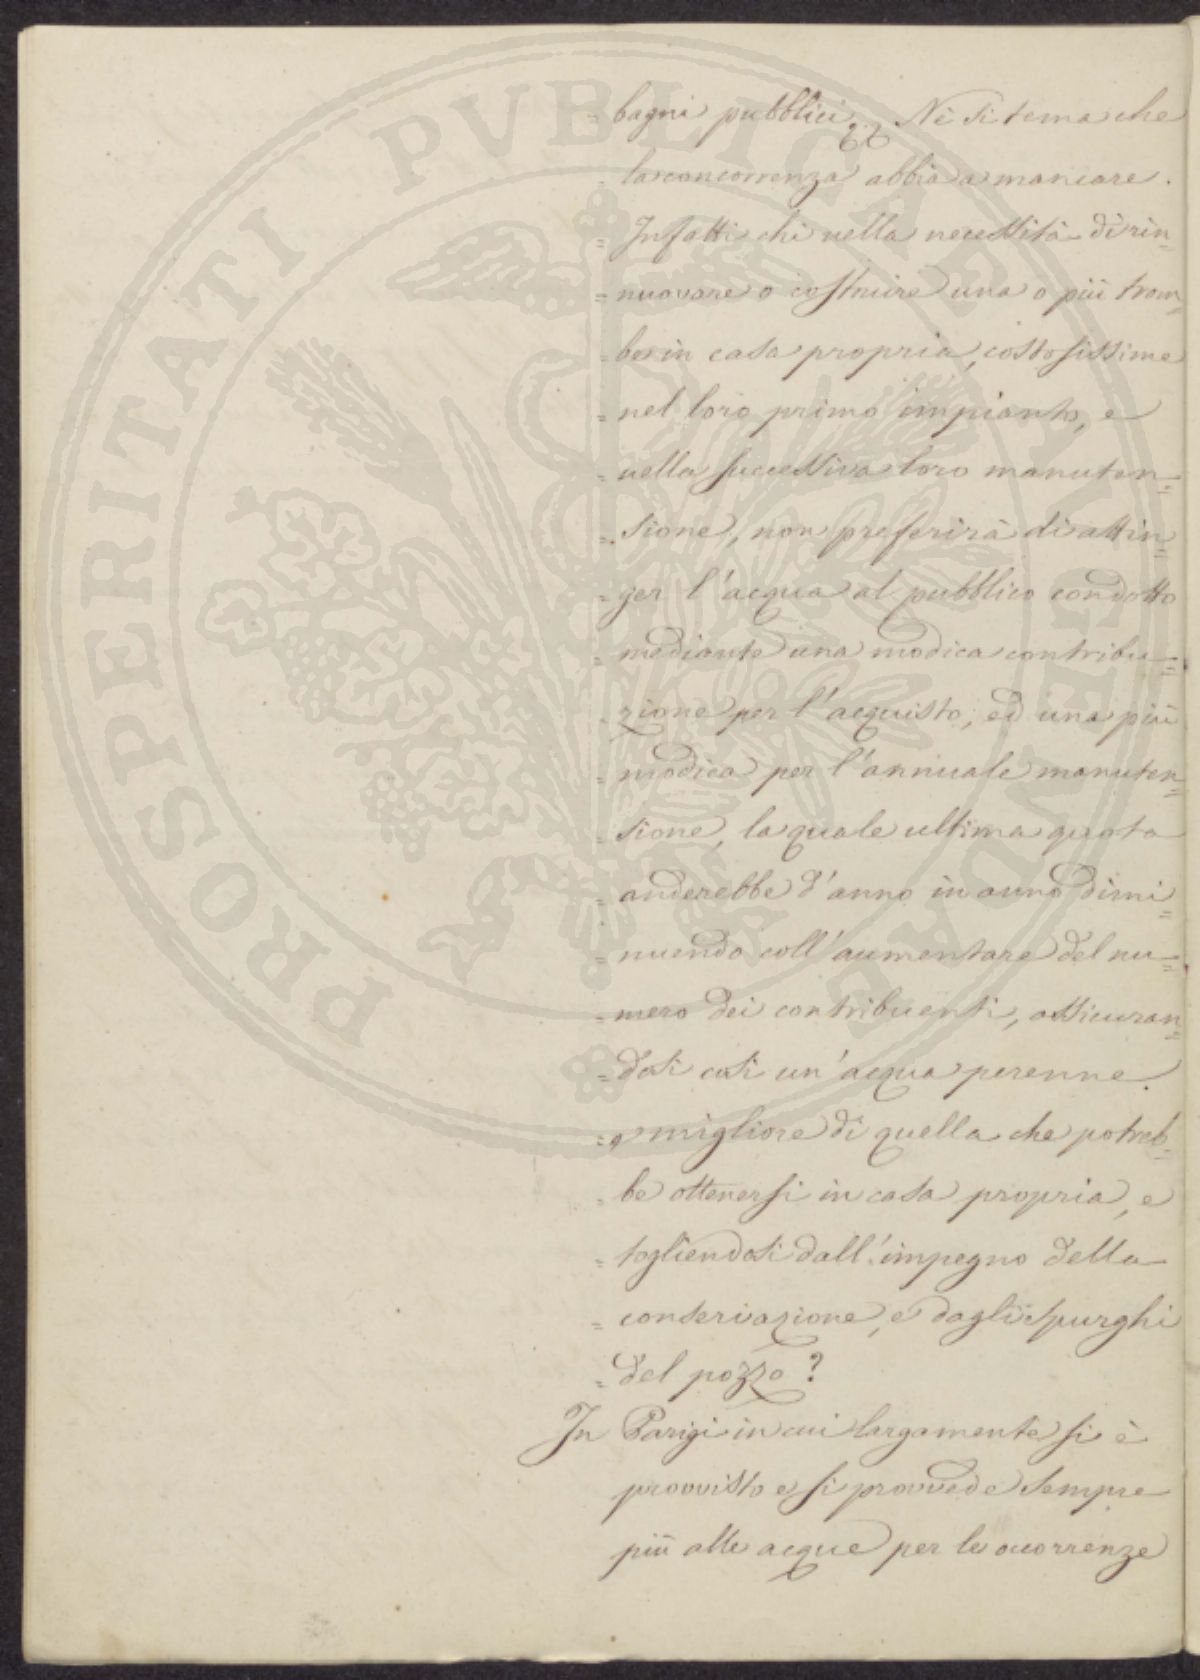 = bagni pubblici „ Nè si tema che
= la concorrenza abbia a mancare.
= Infatti chi nella necessità di rin=
= nuovare o costruire una o più trom=
= be in casa propria, costosissime
= nel loro primo impianto, e
= nella successiva loro manuten=
= sione, non preferirà di attin=
= ger l'acqua al pubblico condotto
= mediante una modica contribu=
= zione per l'acquisto, ed una più
= modica per l'annuale manuten=
= sione, la quale ultima quota
= anderebbe d'anno in anno dimi=
= nuendo coll'aumentare del nu=
= mero dei contribuenti, assicuran=
= dosi così un'acqua perenne
= e migliore di quella che potreb=
= be ottenersi in casa propria, e
= togliendosi dall'impegno della
= conservazione, e dagli spurghi
= del pozzo?
In Parigi in cui largamente si è
provvisto e si provvede sempre
più alle acque per le occorrenze
PROSPERITATI PVBLICAE AVGENDAE